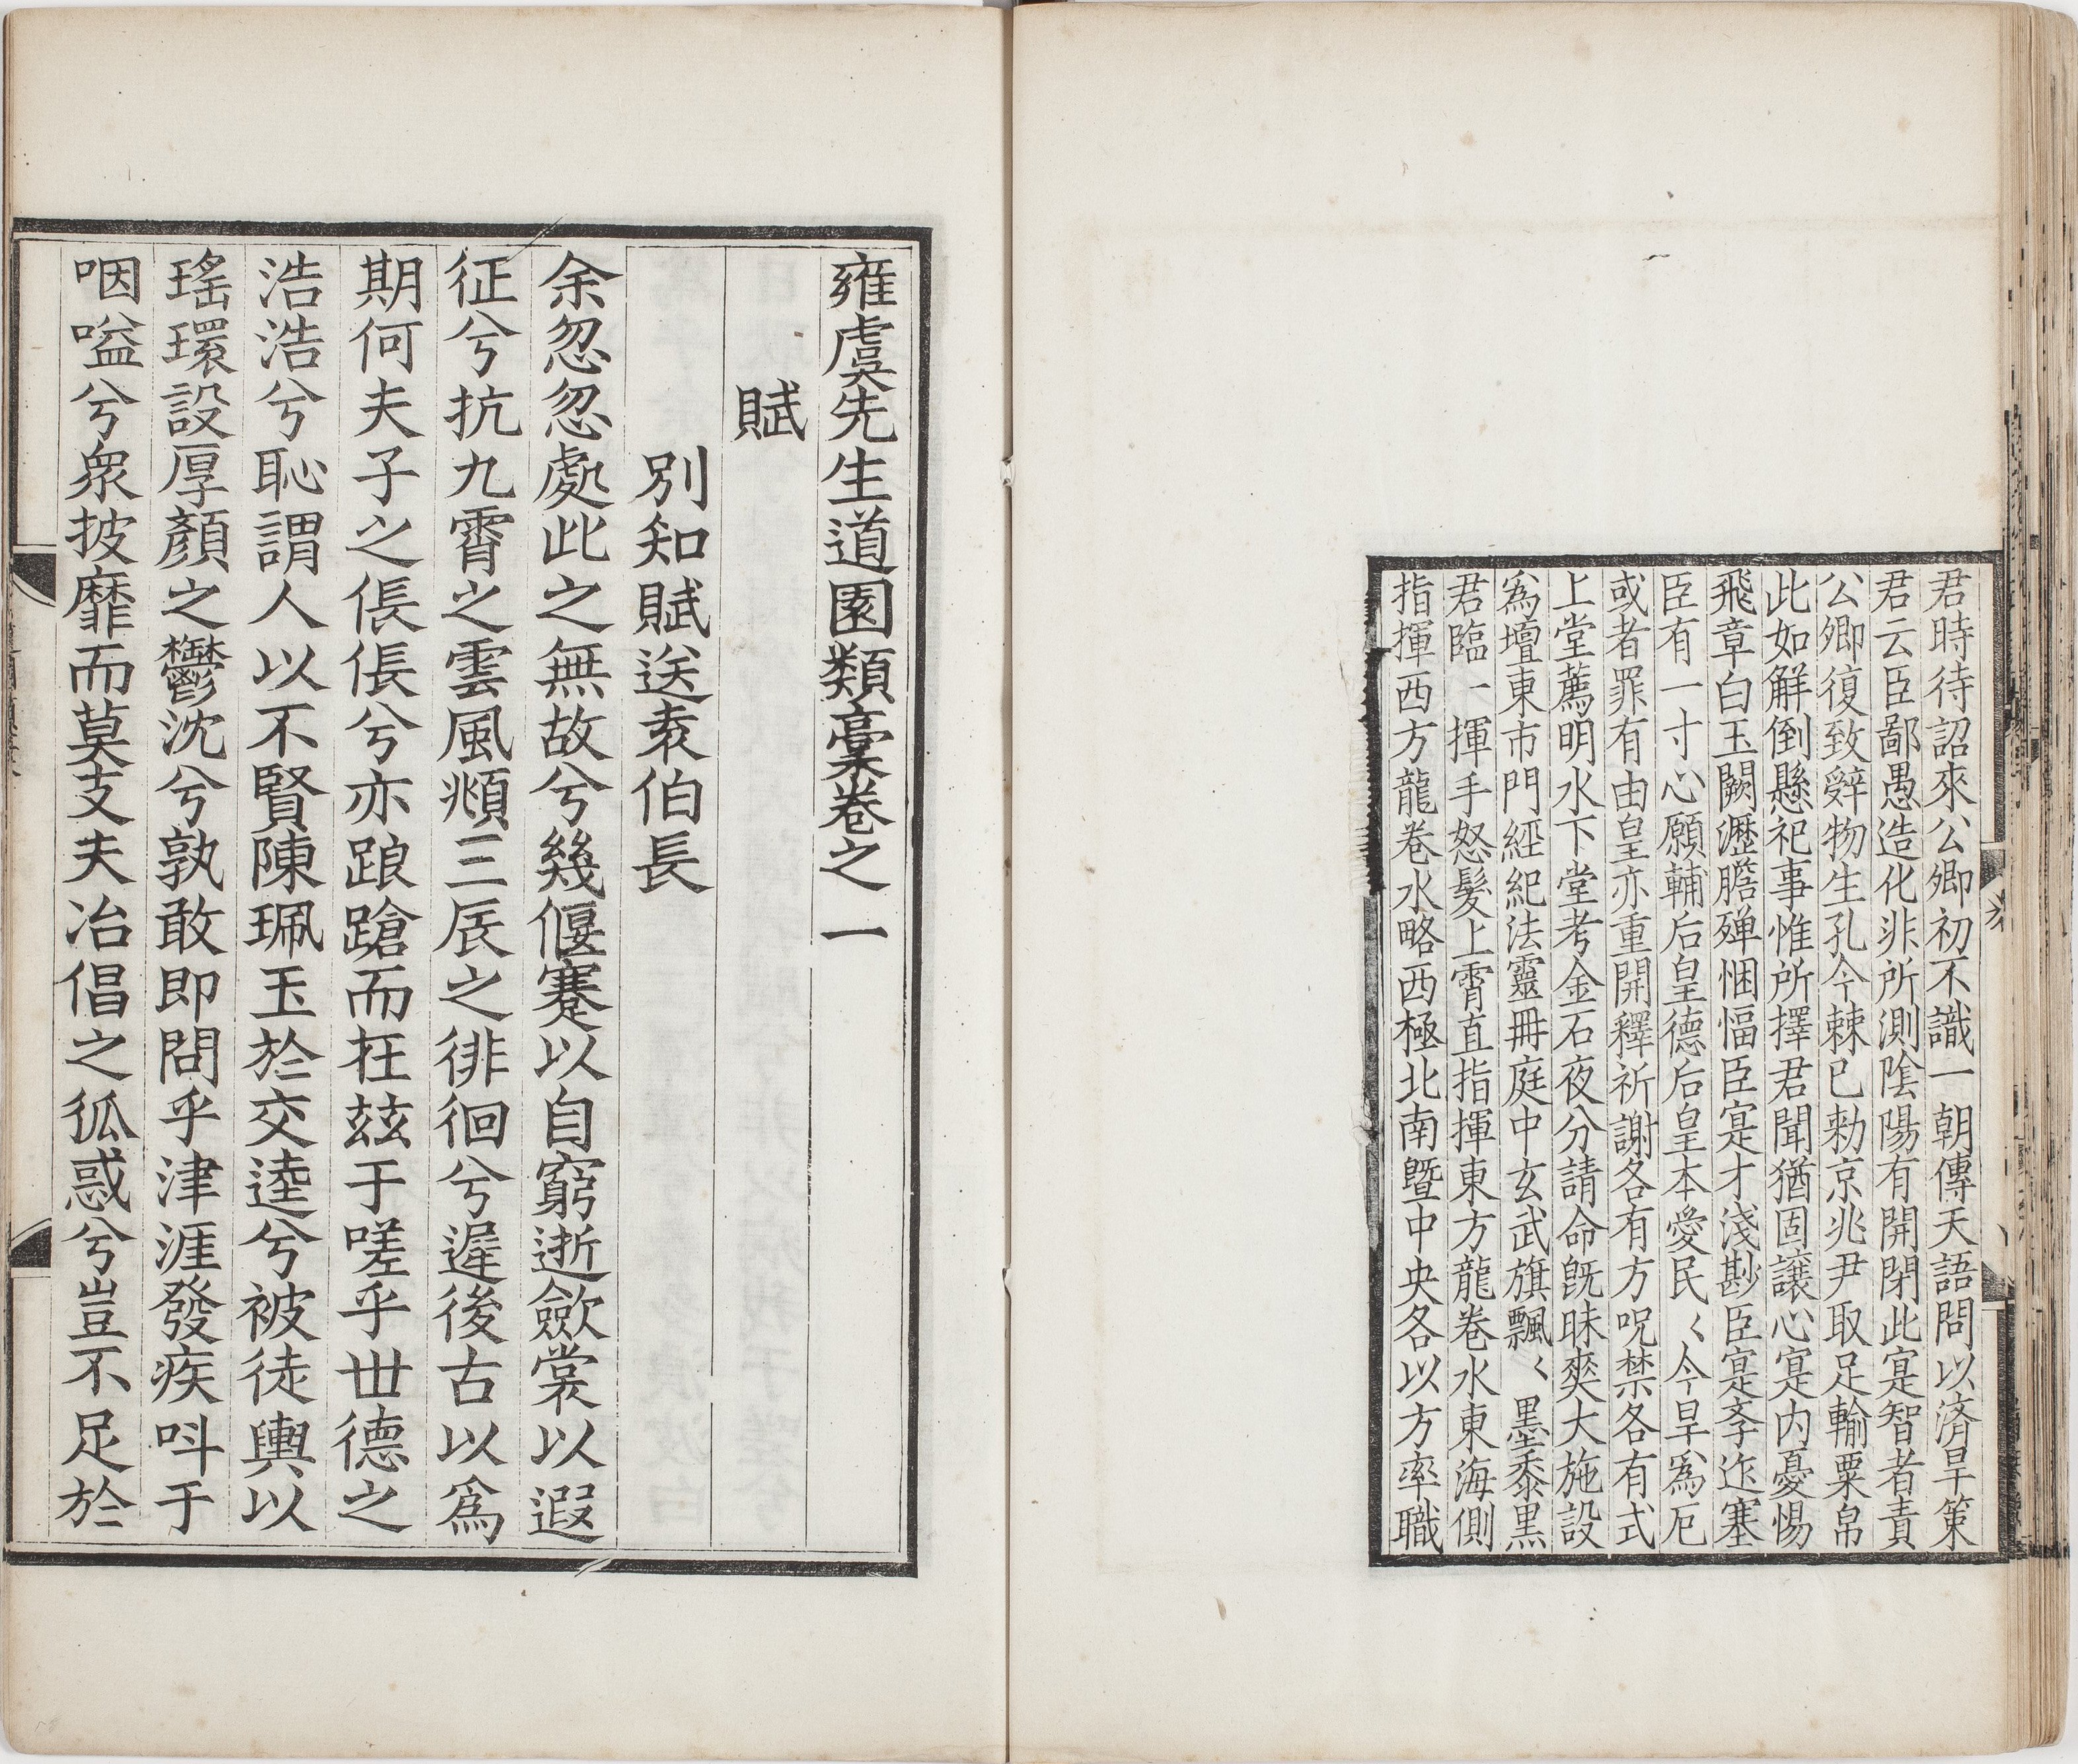 君時待詔來公卿初不識一朝傳天語問以済旱策
君云臣鄙愚造化非所測陰陽有開閉此寔智者責
公卿復致辤物生孔今棘已勑京兆尹取足輸粟帛
此如觧倒懸祀事惟所擇君聞猶固譲心寔内憂惕
飛章白玉闕瀝膽殫悃愊臣寔才淺尠臣寔李迮塞
臣有一寸心願輔后皇德后皇本愛民〻今旱爲厄
或者罪有由皇亦重開釋祈謝各有方呪禁各有式
上堂薦明水下堂考金石夜分請命旣昧爽大施設
爲壇東市門經紀法靈冊庭中玄武旗飄〻墨黍黒
君臨一揮手怒髪上霄直指揮東方龍卷水東海側
指揮西方龍卷水略西極北南曁中央各以方率職
雍虞先生道園類藁卷之一
賦
別知賦送袁伯長
余忽忽處此之無故兮幾偃蹇以自窮逝斂裳以遐
征兮抗九霄之雲風頫三辰之徘徊兮遲後古以爲
期何夫子之倀倀兮亦踉蹌而在玆于嗟乎丗德之
浩浩兮恥謂人以不賢陳珮玉於交逵兮被徒輿以
瑤環設厚顏之鬱沈兮孰敢即問乎津涯發疾呌于
咽嗌兮衆披靡而莫支夫冶倡之狐惑兮豈不足於